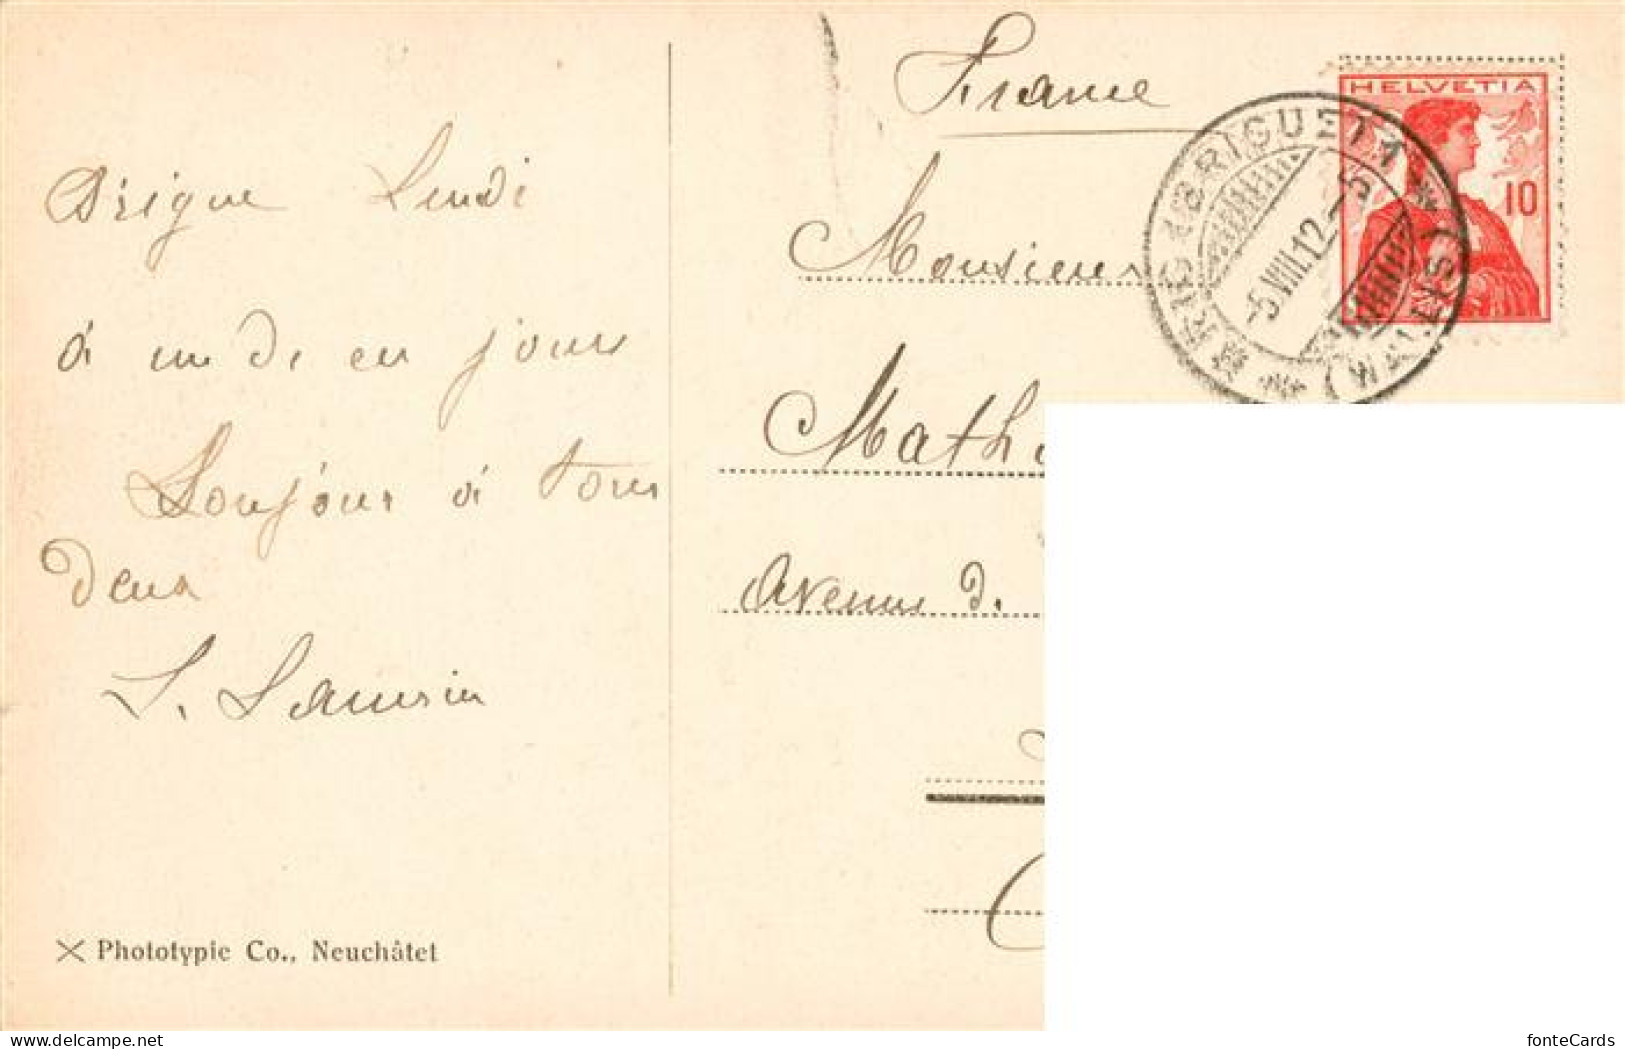 Brigue Lundi
à un de ces jours
Bonjour à tous
deux
France
Monsieur
Math
Avenue d.
HELVETIA
10
BRIG (BRIGUE) 1
-5.VIII.12.-5
(WALLIS)
X Phototypie Co., Neuchâtel
www.delcampe.net
fonteCards